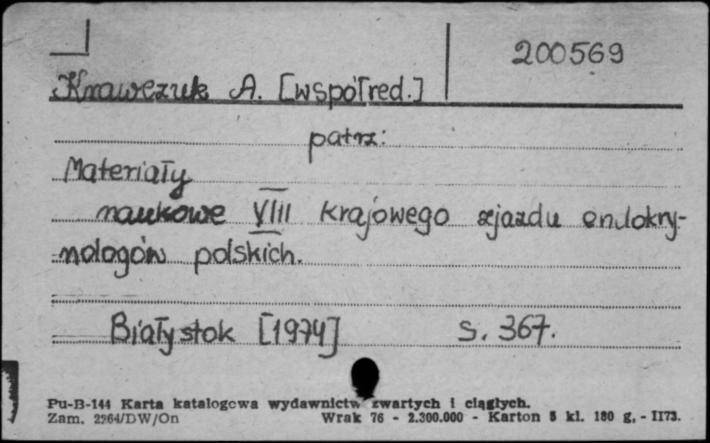 200569
Krawczuk A. [współred.]
patrz:
Materiały
naukowe VIII Krajowego zjazdu endokry-
nologów polskich.
Białystok [1974] s. 367.
Pu-B-144 Karta katalogowa wydawnictw zwartych i ciągłych.
Zam. 2964/DW/On Wrak 76 - 2.300.000 - Karton 5 kl. 180 g, - II73.